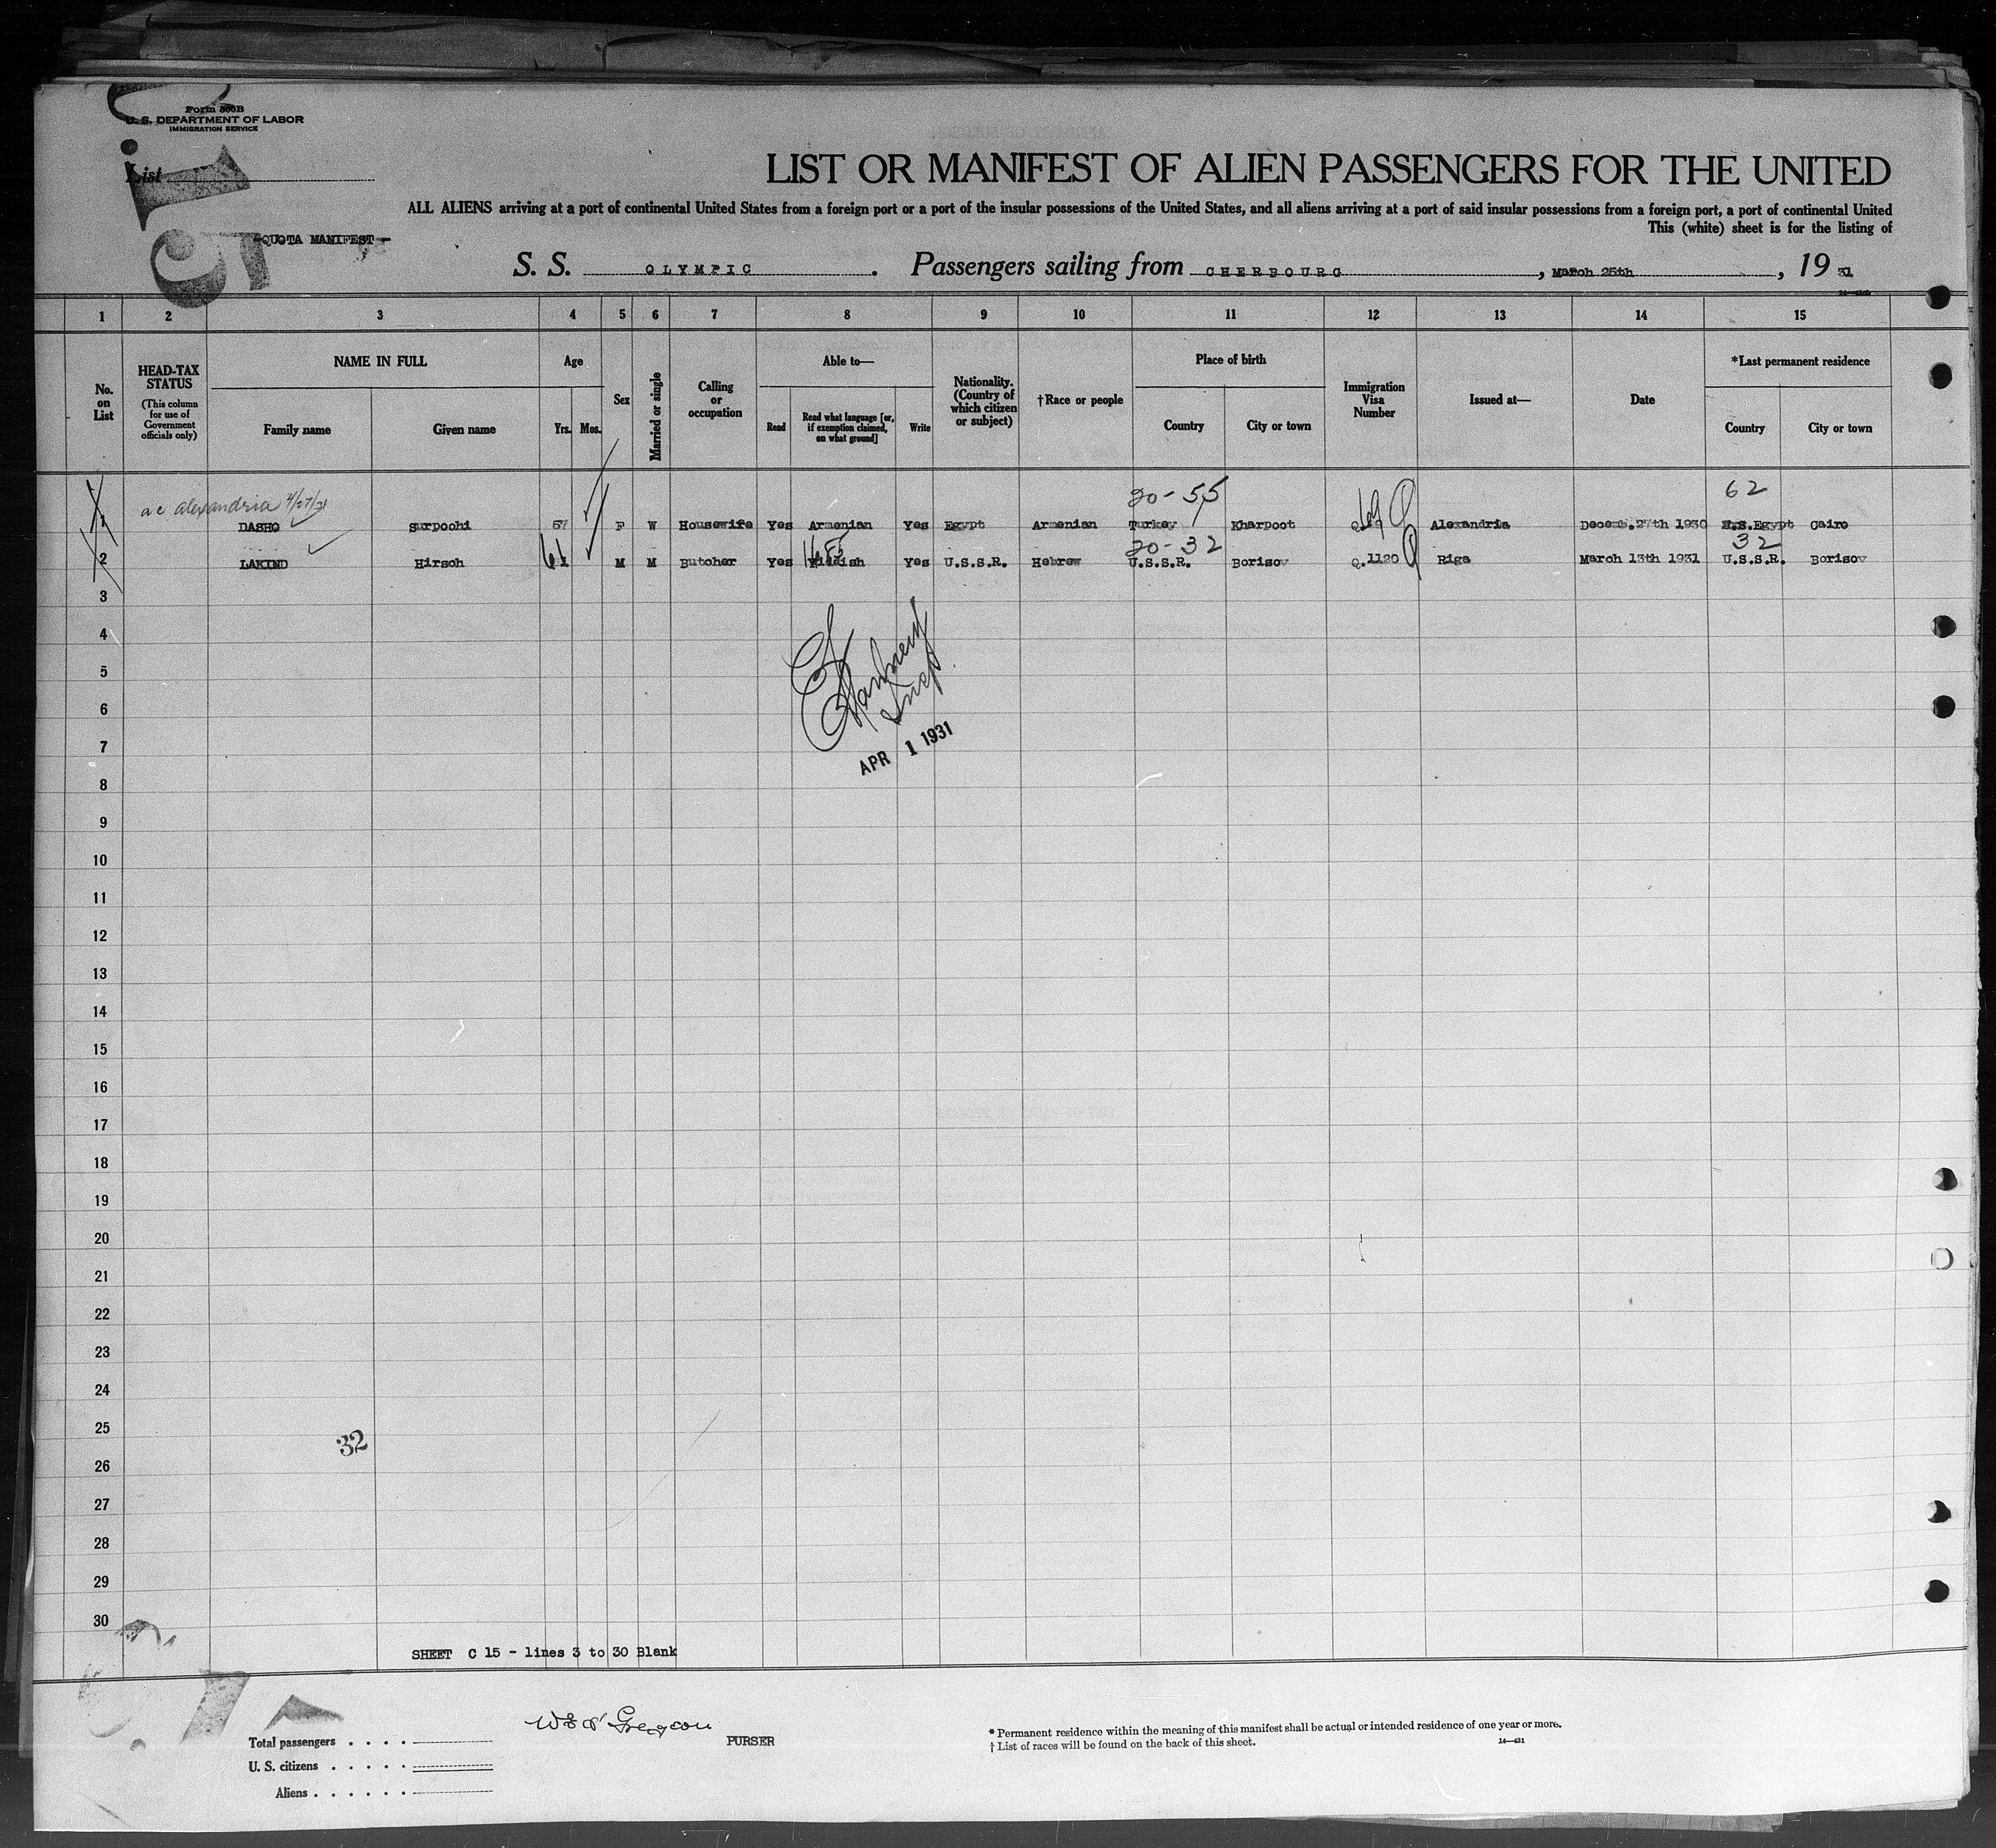 Form 500B
U. S. DEPARTMENT OF LABOR
IMMIGRATION SERVICE
List
LIST OR MANIFEST OF ALIEN PASSENGERS FOR THE UNITED
ALL ALIENS arriving at a port of continental United States from a foreign port or a port of the insular possessions of the United States, and all aliens arriving at a port of said insular possessions from a foreign port, a port of continental United
This (white) sheet is for the listing of
-QUOTA MANIFEST-
S. S. OLYMPIC. Passengers sailing from CHERBOURG, March 25th, 19 31
1 2 3 4 5 6 7 8 9 10 11 12 13 14 15
No. on List
HEAD-TAX STATUS (This column for use of Government officials only)
NAME IN FULL Family name Given name
Age Yrs. Mos.
Sex
Married or single
Calling or occupation
Able to— Read Read what language [or, if exemption claimed, on what ground] Write
Nationality. (Country of which citizen or subject)
†Race or people
Place of birth Country City or town
Immigration Visa Number
Issued at—
Date
*Last permanent residence Country City or town
alexandria 4/27/31 20-55 62
1 DASHO Surpoohi 57 F W Housewife Yes Armenian Yes Egypt Armenian Turkey Kharpoot Alexandria Decemb.27th 1930 Egypt Cairo
20-32 32
2 LAKIND Hirsch 61 M M Butcher Yes Yiddish Yes U.S.S.R. Hebrew U.S.S.R. Borisov Q.1120 Riga March 13th 1931 U.S.S.R. Borisov
3
4
5
6
Insp
7
APR 1 1931
8
9
10
11
12
13
14
15
16
17
18
19
20
21
22
23
24
25
32
26
27
28
29
30
SHEET C 15 - lines 3 to 30 Blank
PURSER
Total passengers . . . .
U. S. citizens . . . . .
Aliens . . . . . .
* Permanent residence within the meaning of this manifest shall be actual or intended residence of one year or more.
† List of races will be found on the back of this sheet.
14—431